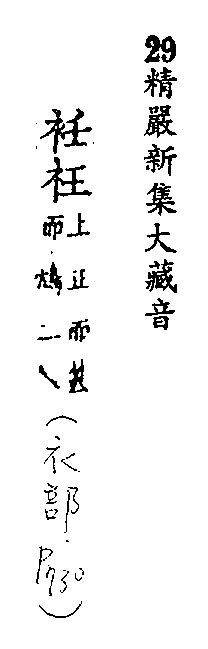 29精嚴新集大藏音
衽上正而甚
而鴆二乀
(衣部.P930)